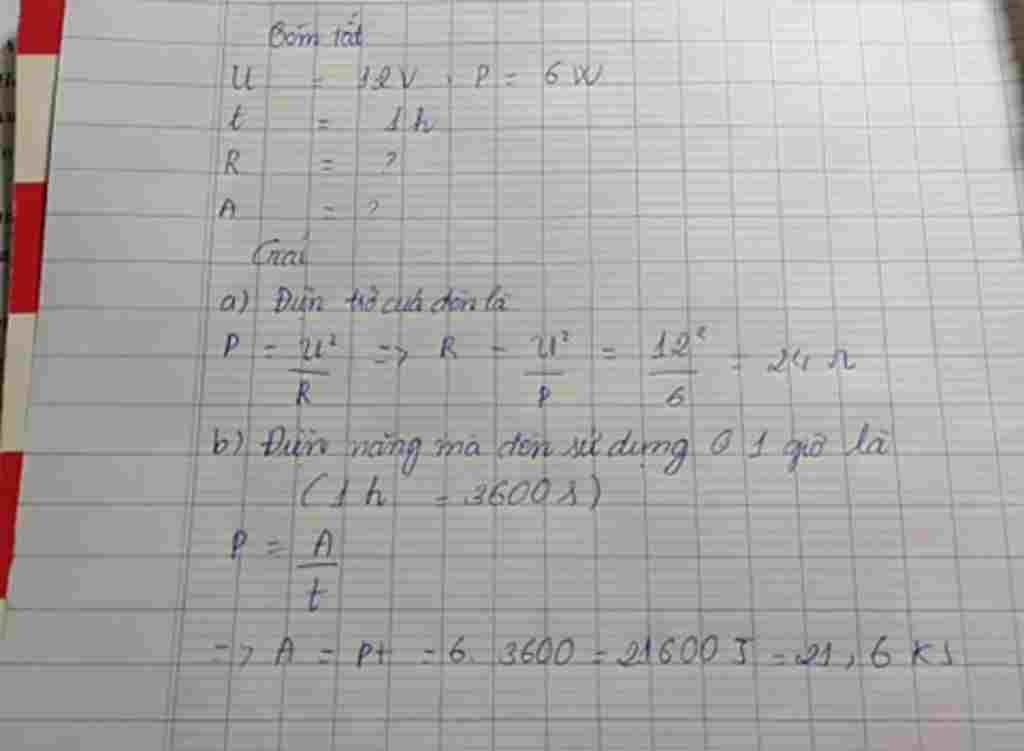 Tóm tắt
U = 12V, P = 6W
t = 1h
R = ?
A = ?
Giải
a) Điện trở của đèn là
P = U²/R => R = U²/P = 12²/6 = 24 Ω
b) Điện năng mà đèn sử dụng ở 1 giờ là
(1h = 3600s)
P = A/t
=> A = Pt = 6. 3600 = 21600 J = 21,6 KJ